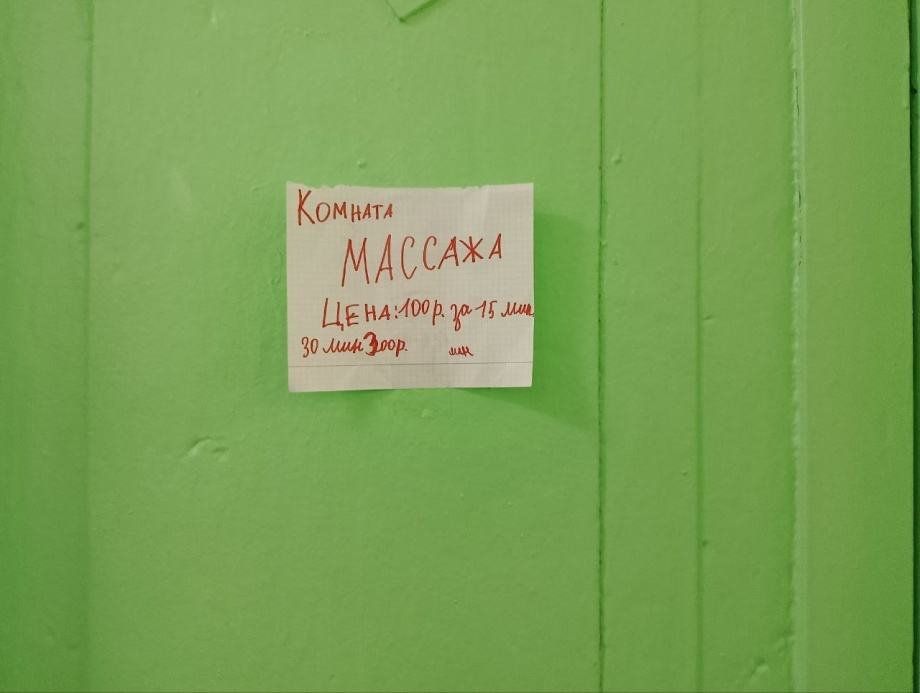 Комната
МАССАЖА
ЦЕНА: 100р. за 15 мин.
30 мин 300р.
мин